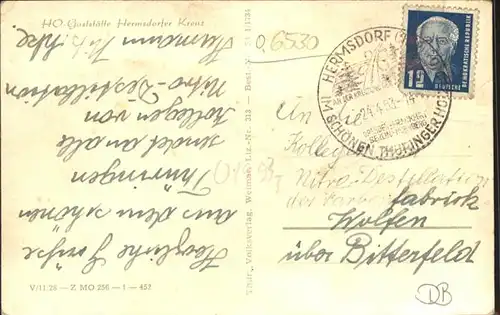 HO-Gaststätte Hermsdorfer Kreuz
Herzliche Grüße
aus dem schönen
Thüringen
sendet an alle
Kollegen von
Nitro-Destillation
Hermann
V/11/28 - Z MO 256 - 1 - 452
Thür. Volksverlag, Weimar, Liz.-Nr. 313 - Best.-Nr.
6530
HERMSDORF (
IM SCHÖNEN THÜRINGER HOL
DEUTSCHE DEMOKRATISCHE REPUBLIK
12
An die
Kollegen
Nitro-Destillation
der Farbenfabrick
Wolfen
über Bitterfeld
DB